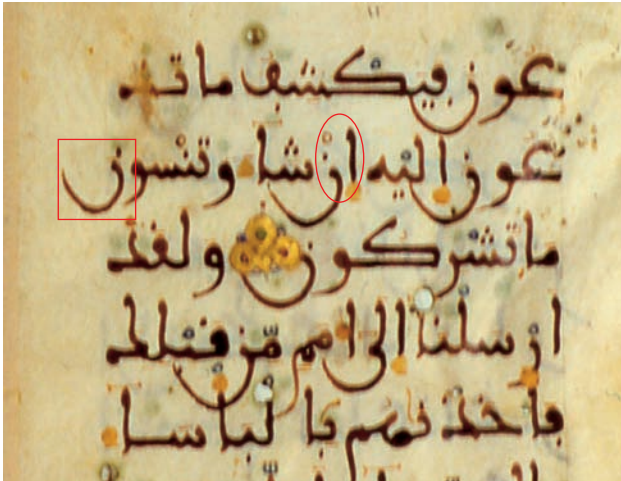 عون فيكشف ما تد
عون اليه ان شا وتنسون
ما تشركون ولقد
ارسلنا الى امم من قبلك
فاخذنهم با لباسا